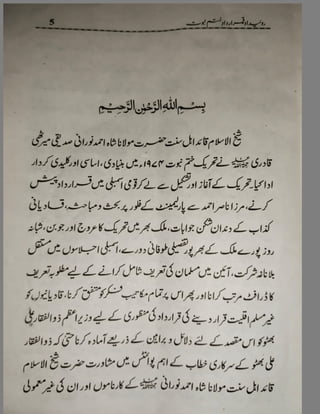 روئیداد و قرارداد ختم نبوت 5
بِسْمِ اللهِ الرَّحْمٰنِ الرَّحِيْمِ
شیخ الاسلام قائد اہل سنت حضرت مولانا شاہ احمد نورانی صدیقی میرٹھی
قادری نے تحریک ختم نبوت ۱۹۷۴ء میں بنیادی، اساسی اور کلیدی کردار
ادا کیا۔ تحریک کے آغاز اور تشکیل سے لے کر قومی اسمبلی میں قرارداد پیش
کرنے، مرزا ناصر احمد سے پارلیمنٹ کے فلور پر بحث و مباحثہ، قادیانی
کذاب کے دندان شکن جوابات، ملک بھر میں تحریک کا عروج اور جوبن، شبانہ
روز پورے ملک کے بھرپور تفصیلی طوفانی دورے، اسمبلی اجلاسوں میں مستقل
بلاناغہ شرکت، آئین میں مسلمان کی تعریف شامل کرانے کے لیے مطلوبہ تعریف
کا ڈرافٹ مرتب کرانا اور پھر اس پر تمام مکاتیب فکر کو متفق کرنا، قادیانیوں کو
غیر مسلم اقلیت قرار دینے کی قرارداد کی منظوری کے لیے وزیر اعظم ذوالفقار علی
بھٹو کو اس مقصد کے لئے دلائل و براہین کے ذریعے آمادہ کرنا حتی کہ ذوالفقار
علی بھٹو کے سرکاری خطاب کے اہم پوائنٹس میں مشاورت حضرت شیخ الاسلام
قائد اہل سنت مولانا شاہ احمد نورانی کے کارناموں اور ان کی غیر معمولی